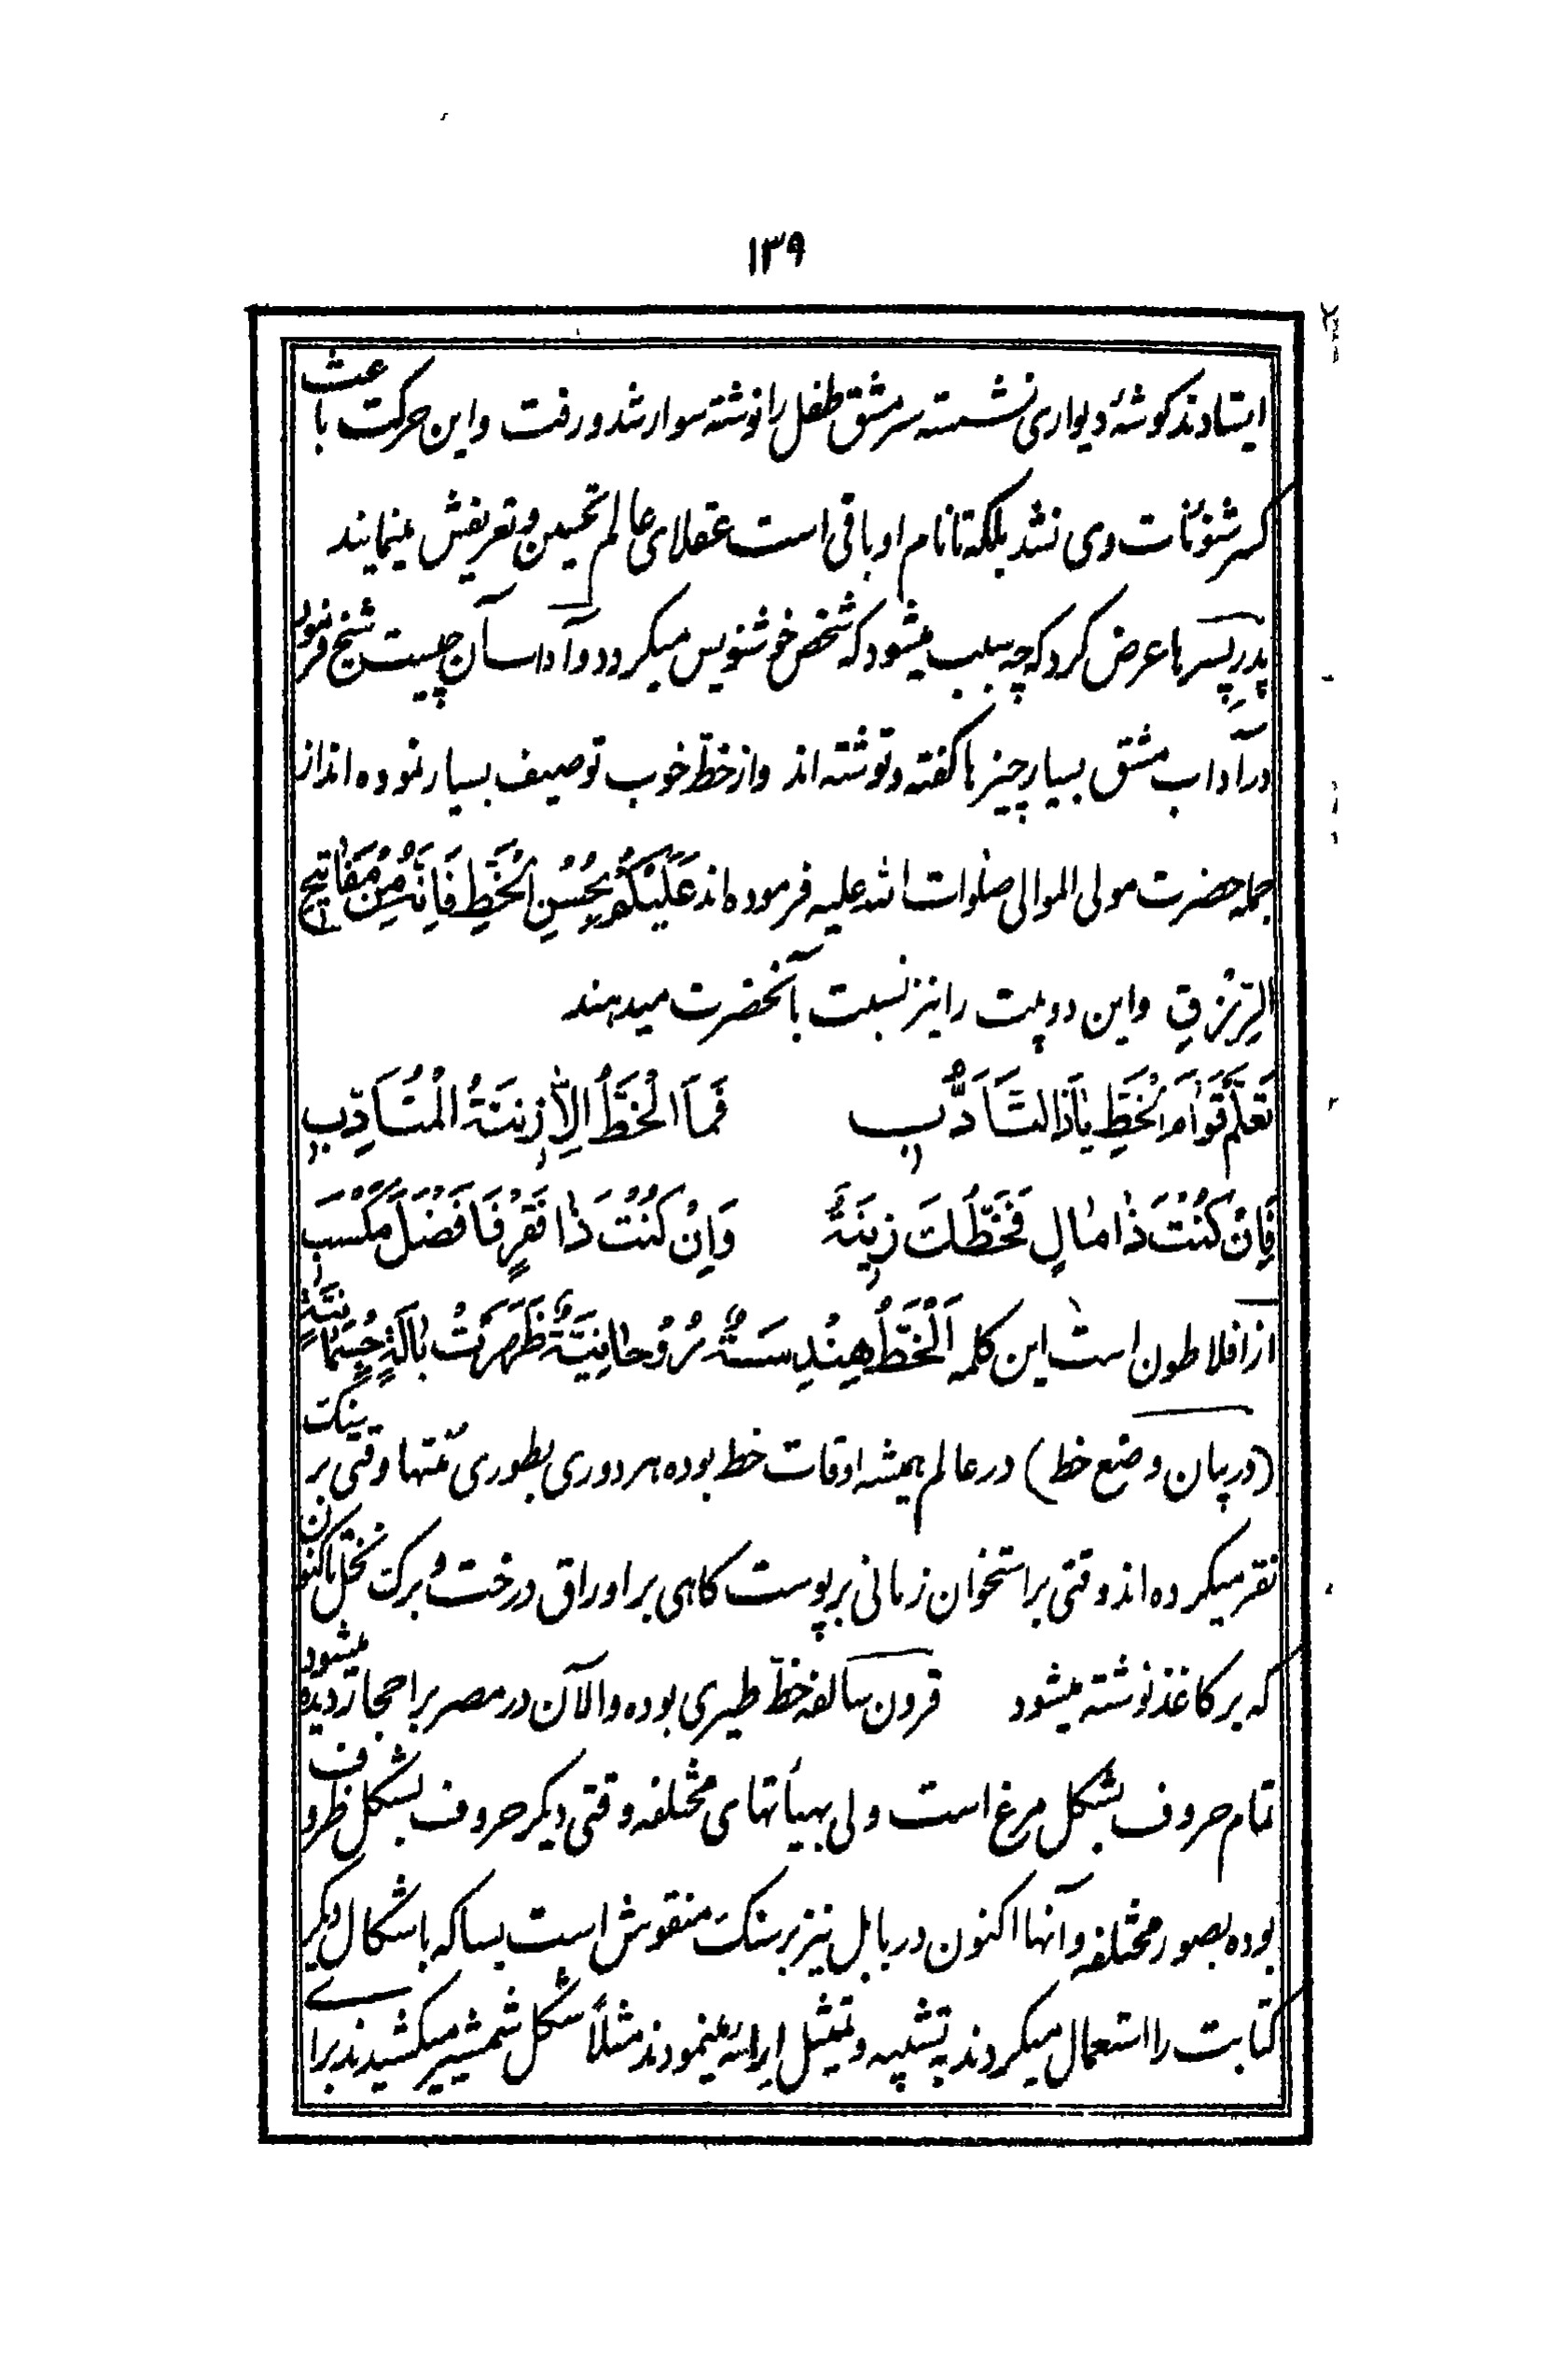 ۱۳۹
ایستادند کوشهٔ دیواری نشسته سرمشق طفل را نوشته سوار شد و رفت واین حرکت باعث
کسر شئونات وی نشد بلکه تا نام او باقی است عقلای عالم تحسین و تعریفش مینمایند
پدر پسرها عرض کرد که چه سبب میشود که شخص خوشنویس میکردد وآداب آن چیست شیخ فرمود
در آداب مشق بسیار چیزها کفته ونوشته اند واز خطّ خوب توصیف بسیار نموده اند از
جمله حضرت مولی الموالی صلوات الله علیه فرموده اند عَلَیْکُمْ بِحُسْنِ الْخَطِّ فَاِنَّهُ مِنْ مَفاتیحِ
الرِّزْقِ واین دو بیت را نیز نسبت بآنحضرت میدهند
تَعَلَّمْ قَوٰامَ الْخَطِّ یٰا ذَا التَّأَدُّبِ فَمَا الْخَطُّ اِلّا زینَةُ الْمُتَأَدِّبِ
فَاِنْ کُنْتَ ذٰا مٰالٍ فَخَطُّکَ زینَةٌ وَاِنْ کُنْتَ ذٰا فَقْرٍ فَاَفْضَلُ مَکْسَبِ
از افلاطون است این کلمه اَلْخَطُّ هِنْدِسَةٌ رُوُحانِیَّةٌ ظَهَرَتْ بِاٰلَةٍ جُسْمانِیَّةٍ
(در بیان وضع خط) در عالم همیشه اوقات خط بوده هر دوری بطوری مُنتها وقتی بر سنک
نقر میکرده اند وقتی بر استخوان زمانی بر پوست کاهی بر اوراق درخت و برک نخل تا کنون
که بر کاغذ نوشته میشود قرون سالفه خطّ طیری بوده والآن در مصر بر احجار دیده میشود
تمام حروف بشکل مرغ است ولی بهیأتهای مختلفه وقتی دیکر حروف بشکل ظروف
بوده بصور مختلفه وآنها اکنون در بابل نیز بر سنک منقوش است بسا که باشکال دیکر
کتابت را استعمال میکردند تشبیه وتمثیل ارائه مینمودند مثلاً شکل شمشیر میکشیدند برای